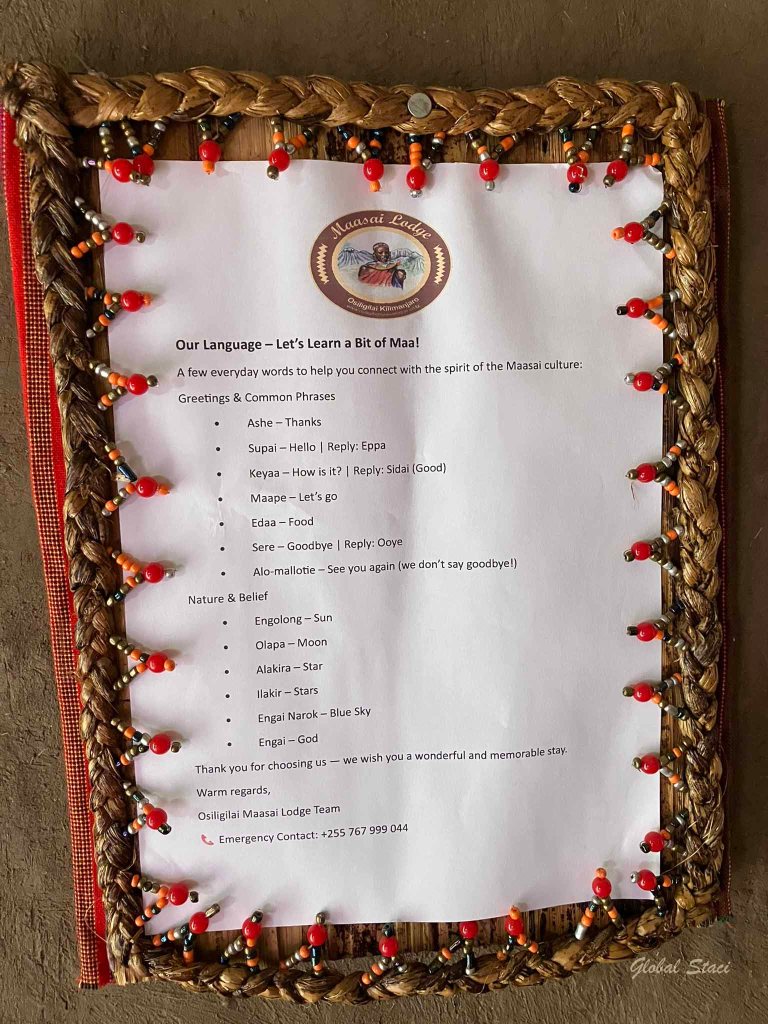 Maasai Lodge
Osiligilai Kilimanjaro
Our Language – Let's Learn a Bit of Maa!
A few everyday words to help you connect with the spirit of the Maasai culture:
Greetings & Common Phrases
• Ashe – Thanks
• Supai – Hello | Reply: Eppa
• Keyaa – How is it? | Reply: Sidai (Good)
• Maape – Let's go
• Edaa – Food
• Sere – Goodbye | Reply: Ooye
• Alo-mallotie – See you again (we don't say goodbye!)
Nature & Belief
• Engolong – Sun
• Olapa – Moon
• Alakira – Star
• Ilakir – Stars
• Engai Narok – Blue Sky
• Engai – God
Thank you for choosing us — we wish you a wonderful and memorable stay.
Warm regards,
Osiligilai Maasai Lodge Team
Emergency Contact: +255 767 999 044
Global Staci